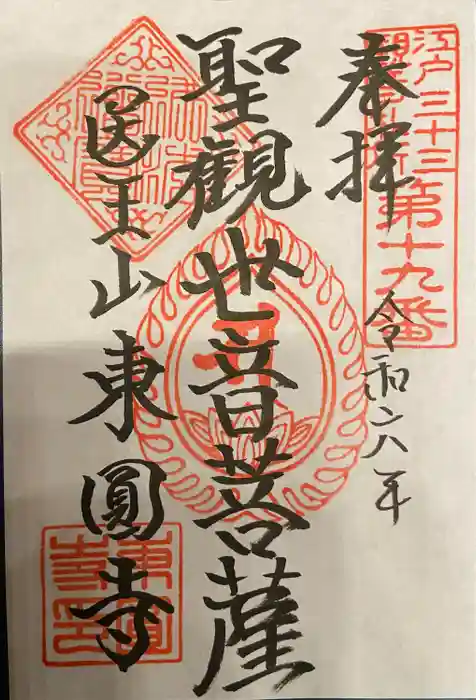 江戸三十三
観音札所第十九番
奉拝
令和六年
聖観世音菩薩
医王山東圓寺
東圓寺印